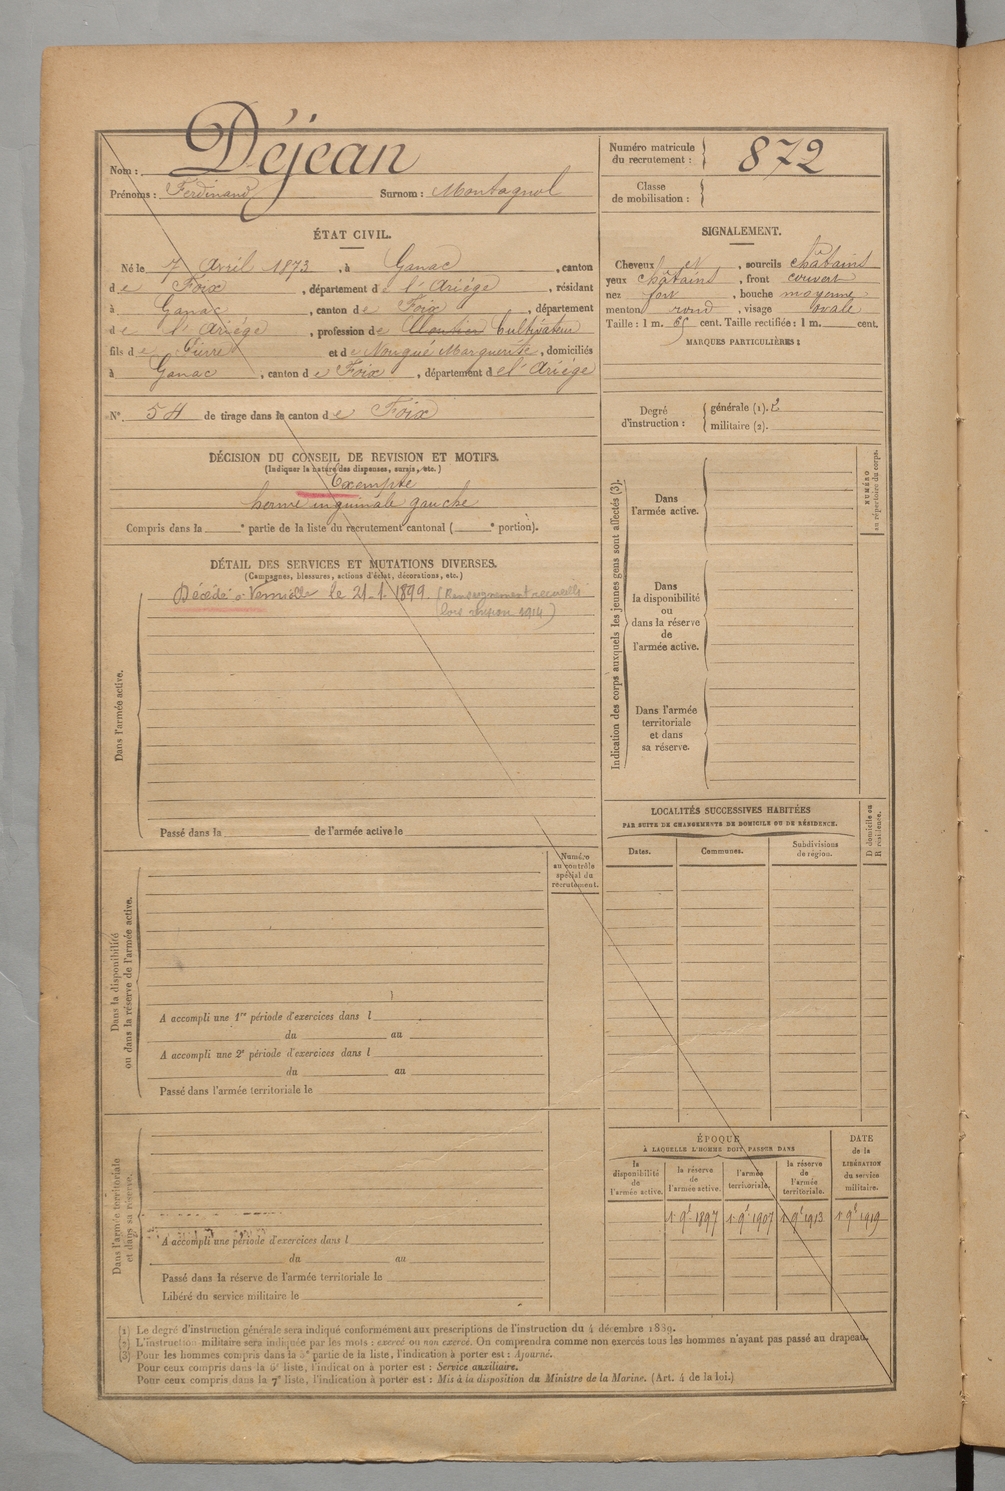 Nom : Déjean
Prénoms : Ferdinand Surnom : Montagnol
Numéro matricule du recrutement : 872
Classe de mobilisation :
ÉTAT CIVIL.
Né le 7 Avril 1873, à Ganac, canton
de Foix, département de l'Ariège, résidant
à Ganac, canton de Foix, département
de l'Ariège, profession de Cultivateur
fils de Pierre et de Nougué Marguerite, domiciliés
à Ganac, canton de Foix, département de l'Ariège
N° 54 de tirage dans le canton de Foix
SIGNALEMENT.
Cheveux et, sourcils châtains
yeux châtains, front couvert
nez fort, bouche moyenne
menton rond, visage ovale
Taille : 1 m. 65 cent. Taille rectifiée : 1 m. cent.
MARQUES PARTICULIÈRES :
Degré d'instruction : générale (1). 2
militaire (2).
DÉCISION DU CONSEIL DE REVISION ET MOTIFS.
(Indiquer la nature des dispenses, sursis, etc.)
Exempté
hernie inguinale gauche
Compris dans la e partie de la liste du recrutement cantonal ( e portion).
DÉTAIL DES SERVICES ET MUTATIONS DIVERSES.
(Campagnes, blessures, actions d'éclat, décorations, etc.)
Décédé à le 21-1-1899. (Renseignement recueilli
lors revision 1914)
Dans l'armée active.
Passé dans la de l'armée active le
Indication des corps auxquels les jeunes gens sont affectés (3).
Dans l'armée active.
Dans la disponibilité ou dans la réserve de l'armée active.
Dans l'armée territoriale et dans sa réserve.
NUMÉRO au répertoire du corps.
LOCALITÉS SUCCESSIVES HABITÉES
PAR SUITE DE CHANGEMENTS DE DOMICILE OU DE RÉSIDENCE.
Dates. Communes. Subdivisions de région.
D domicile ou R résidence.
Numéro au contrôle spécial du recrutement.
Dans la disponibilité ou dans la réserve de l'armée active.
A accompli une 1re période d'exercices dans l
du au
A accompli une 2e période d'exercices dans l
du au
Passé dans l'armée territoriale le
Dans l'armée territoriale et dans sa réserve.
A accompli une période d'exercices dans l
du au
Passé dans la réserve de l'armée territoriale le
Libéré du service militaire le
ÉPOQUE
À LAQUELLE L'HOMME DOIT PASSER DANS
la disponibilité de l'armée active. la réserve de l'armée active. l'armée territoriale. la réserve de l'armée territoriale.
DATE de la LIBÉRATION du service militaire.
1 9e 1897 1 9e 1907 1 9e 1913 1 9e 1919
(1) Le degré d'instruction générale sera indiqué conformément aux prescriptions de l'instruction du 4 décembre 1889.
(2) L'instruction militaire sera indiquée par les mots : exercé ou non exercé. On comprendra comme non exercés tous les hommes n'ayant pas passé au drapeau.
(3) Pour les hommes compris dans la 5e partie de la liste, l'indication à porter est : Ajourné.
Pour ceux compris dans la 6e liste, l'indication à porter est : Service auxiliaire.
Pour ceux compris dans la 7e liste, l'indication à porter est : Mis à la disposition du Ministre de la Marine. (Art. 4 de la loi.)